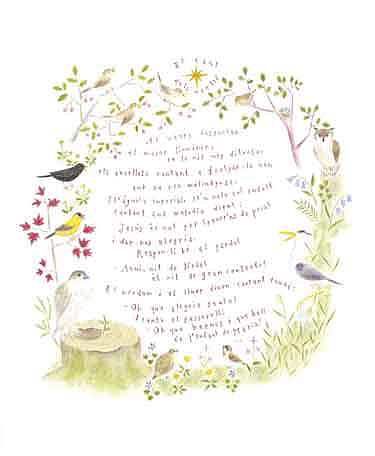 El cant
dels ocells
Al veure despuntar
el major lluminar
en la nit més ditxosa
els ocellets cantant, a festejar-lo van
amb sa veu melindrosa.
L'àguila imperial s'en vola cel endalt
cantant amb melodia dient:
Jesús és nat per treure'ns de pecat
i dar-nos alegria.
Respon-li bé el pardal
Avui, nit de Nadal
és nit de gran contento!
El verdum i el lluer diuen cantant també:
Oh que alegria sento!
El passerell:
Oh que hermós i que bell
és l'Infant de Maria!